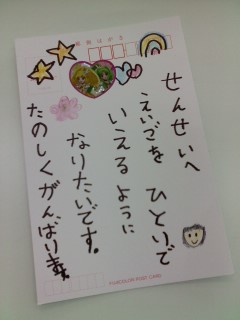 郵便はがき
せんせいへ
えいごを ひとりで
いえるように
なりたいです。
たのしくがんばります。